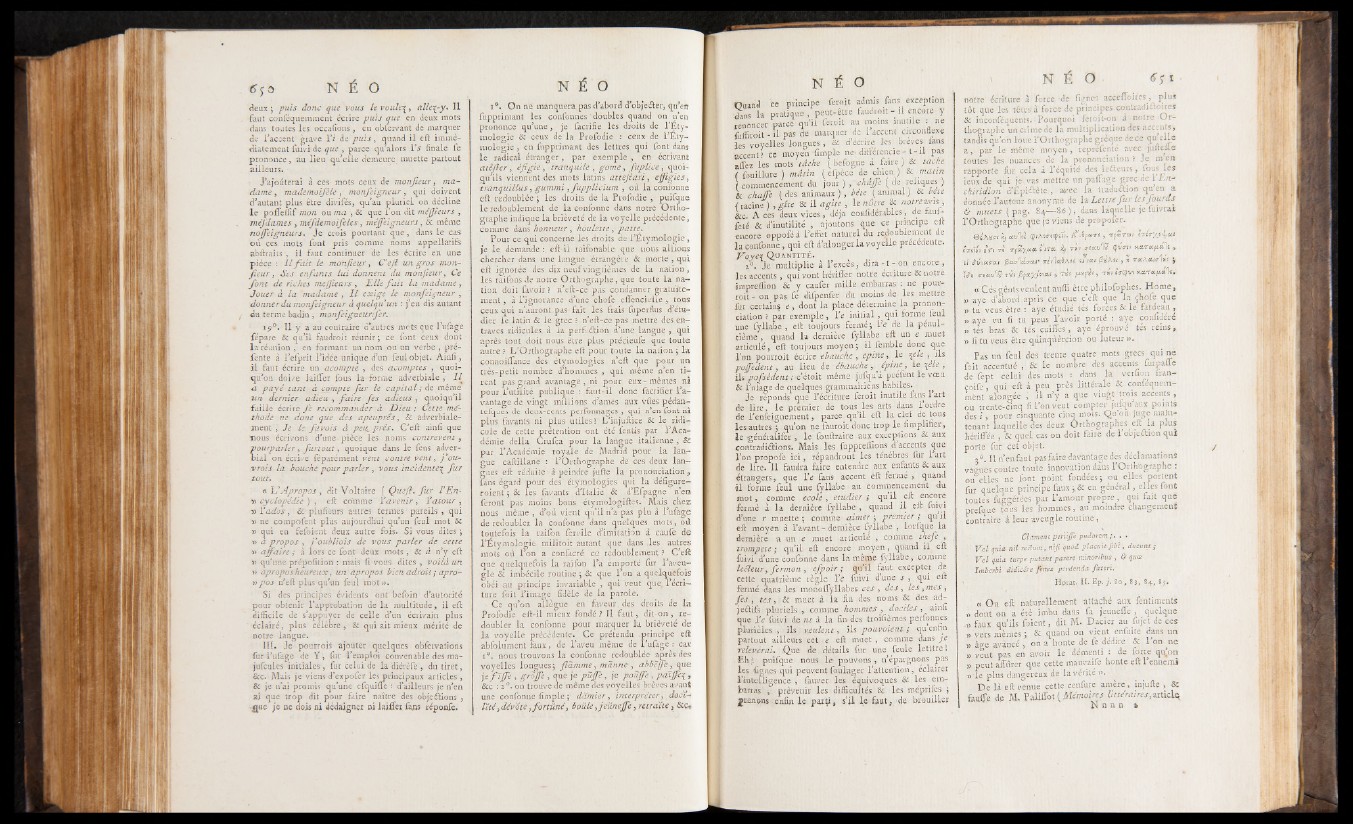 650 NÉO
deux ; puis donc que vous le voulez, allez-y. Il
faut conséquemment écrire puis que en deux mots
dans toutes les occasions, en observant de marquer
de l'accent grave l'ì de puis, quand il est immé-
diatement suivi de que, parce qu'alors l's finale se
prononce, au lieu qu'elle demeure muette partout
ailleurs.
J'ajoûterai à ces mots ceux de monsieur, ma-
dame, mademoiselle, monseigneur, qui doivent
d'autant plus être divisés, qu'au pluriel on décline
le possessif mon ou ma, & que l'on dit messieurs,
mesdames, mesdemoiselles, messeigneurs, & même
nosseigneurs. Je crois pourtant que, dans le cas
où ces mots sont pris comme noms appellatifs
abstraits, il faut continuer de les écrire en une
pièce : Il fait le monsieur, C'est un gros mon-
sieur, Ses enfants lui donnent du monsieur, Ce
sont de riches messieurs, Elle fait la madame,
Jouer à la madame, Il exige le monseigneur,
donner du monseigneur à quelqu'un : j'en dis autant
du terme badin, monseigneuriser.
19°. Il y a au contraire d'autres mots que l'usage
sépare & qu'il faudroit réunir ; ce sont ceux dont
la réunion, en formant un nom ou un verbe, pré-
sente à l'esprit l'idée unique d'un seul objet. Ainsi,
il faut écrire un acompte, des acomptes, quoi-
qu'on doive laisser sous la forme adverbiale, Il
a payé tant à compte sur le capital ; de même
un dernier adieu, faire ses adieux, quoiqu'il
faille écrire se recommander à Dieu : Cette mé-
thode ne donne que des apeuprès, & adverbiale-
ment, Je le savois à peu près. C'est ainsi que
nous écrivons d'une pièce les noms contrevent,
pourparler, surtout, quoique dans le sens adver-
bial on écrive séparément vent contre vent, j'ou-
vrois la bouche pour parler, vous incidentez sur
tout.
« L'Apropos, dit Voltaire (Quest. sur l'En-
» cyclopédie), est comme l'avenir, l'atour,
» l'ados, & plusieurs autres termes pareils, qui
» ne composent plus aujourdhui qu'un seul mot &
» qui en fesoient deux autre fois. Si vous dites ;
» à propos, j'oubliois de vous parler de cette
» affaire ; à lors ce sont deux mots, & à n'y est
» qu'une préposition : mais si vous dites, voilà un
» apropos heureux, un apropos bien adroit ; apro-
» pos n'est plus qu'un seul mot ».
Si des principes évidents ont besoin d'autorité
pour obtenir l'approbation de la multitude, il est
difficile de s'appuyer de celle d'un écrivain plus
éclairé, plus célèbre, & qui ait mieux mérité de
notre langue.
III. Je pourrois ajoûter quelques observations
sur l'usage de Y, sur l'emploi convenable des ma-
juscules initiales, sur celui de la diérèse, du tiret,
&c. Mais je viens d'exposer les principaux articles,
& je n'ai promis qu'une esquisse : d'ailleurs je n'en
ai que trop dit pour faire naître des objections,
que je ne dois ni dédaigner ni laisser sans réponse.
NÉO
1°. On ne manquera pas d'abord d'objecter, qu'en
supprimant les consonnes doubles quand on n'en
prononce qu'une, je sacrifie les droits de l'Éty-
mologie & ceux de la Prosodie : ceux de l'Éty-
mologie, en supprimant des lettres qui sont dans
le radical étranger, par exemple, en écrivant
atéster, éfigie, tranquile, gome, suplice, quoi-
qu'ils viennent des mots latins attestari, effigies,
tranquillus, gummi, supplicium, où la consonne
est redoublée ; les droits de la Prosodie, puisque
le redoublement de la consonne dans notre Ortho-
graphe indique la briéveté de la voyelle précédente,
comme dans honneur, houlette, patte.
Pour ce qui concerne les droits de l'Étymologie,
je le demande : est-il raisonable que nous allions
chercher dans une langue étrangère & morte, qui
est ignorée des dix neuf vingtièmes de la nation,
les raisons de notre Orthographe, que toute la na-
tion doit savoir ? n'est-ce pas condanner gratuite-
ment, à l'ignorance d'une chose essencielle, tous
ceux qui n'auront pas fait les frais superflus d'étu-
dier le latin & le grec ? n'est-ce pas mettre des en-
traves ridicules à la perfection d'une langue, qui
après tout doit nous être plus précieuse que toute
autre ? L'Orthographe est pour toute la nation ; la
connoissance des étymologies n'est que pour un
très-petit nombre d'hommes, qui même n'en ti-
rent pas grand avantage, ni pour eux-mêmes ni
pour l'utilité publique : faut-il donc sacrifier l'a-
vantage de vingt millions d'ames aux vûes pédan-
tesques de deux-cents personnages, qui n'en sont ni
plus savants ni plus utiles ? L'injustice & le ridi-
cule de cette prétention ont été sentis par l'Aca-
démie della Crusca pour la langue italienne, &
par l'Académie royale de Madrid pour la lan-
gue castillane : l'Orthographe de ces deux lan-
gues est réduite à peindre juste la prononciation,
sans égard pour des étymologies qui la défigure-
roient ; & les savants d'Italie & d'Espagne n'en
seront pas moins bons étymologistes. Mais chez
nous même, d'où vient qu'il n'a pas plu à l'usage
de redoubler la consonne dans quelques mots, où
toutefois la raison servile d'imitation à cause de
l'Étymologie militoit autant que dans les autres
mots où l'on a consacré ce redoublement ? C'est
que quelquefois la raison l'a emporté sur l'aveu-
gle & imbécille routine ; & que l'on a quelquefois
obéi au principe invariable, qui veut que l'écri-
ture soit l'image fidèle de la parole.
Ce qu'on allègue en faveur des droits de la
Prosodie est-il mieux fondé ? Il faut, dit on, re-
doubler la consonne pour marquer la briéveté de
la voyelle précédente. Ce prétendu principe est
absolument faux, de l'aveu même de l'usage : car
1°. nous trouvons la consonne redoublée après des
voyelles longues ; flamme, manne, abbesse, que
je fisse, grosse, que je pusse, je pousse, passez,
&c : 2°. on trouve de même des voyelles brèves avant
une consonne simple ; dèmier, intepréter, doci-
lité, dévote, fortune, boule, jeûnesse, retraite, &c,
NÉO
Quand ce principe seroit admis sans exception
dans la pratique, peut-être faudroit-il encore y
renoncer parce qu'il seroit au moins inutile : ne
suffiroit-il pas de marquer de l'accent circonflexe
les voyelles longues, & d'écrire les brèves sans
accent ? ce moyen simple ne différencie-t-il pas
assez les mots tâche (besogne à faire) & tache
(souillure) mâtin (espèce de chien) & matin
(commencement du jour), châsse (de reliques)
& chasse (des animaux), bête (animal) & bète
(racine), gîte & il agite, le nôtre & notre avis,
&c. A ces deux vices, déja considérables, de faus-
seté & d'inutilité, ajoutons que ce principe est
encore opposé à l'effet naturel du redoublement de
la consonne, qui est d'alonger la voyelle précédente.
Voyez QUANTITÉ.
2°. Je multiplie à l'excès, dira-t-on encore,
les accents, qui vont hérisser notre écriture & notre
impression & y causer mille embarras : ne pour-
roit-on pas se dispenser du moins de les mettre
sur certains e, dont la place détermine la pronon-
ciation ? par exemple, l'e initial, qui forme seul
une syllabe, est toujours fermé ; l'e de la pénul-
tième, quand la dernière syllabe est un e muet
articulé, est toujours moyen ; il semble donc que
l'on pourroit écrire ebauche, epine, le zele, ils
possedent, au lieu de ébauche, épine, le zèle,
ils possèdent : c'étoit même jusqu'à présent le vœu
& l'usage de quelques grammairiens habiles.
Je réponds que l'écriture seroit inutile sans l'art
de lire, le premier de tous les arts dans l'ordre
de l'enseignement, parce qu'il est la clef de tous
les autres ; qu'on ne sauroit donc trop le simplifier,
le généraliser, le soustraire aux exceptions & aux
contradictions. Mais les suppressions d'accents que
l'on propose ici, répandront les ténèbres sur l'art
de lire. Il faudra faire entendre aux enfants & aux
étrangers, que l'e sans accent est fermé, quand
il forme seul une syllabe au commencement du
mot, comme ecole, etudier ; qu'il est encore
fermé à la dernière syllabe, quand il est suivi
d'une r muette ; comme aimer, premier ; qu'il
est moyen à l'avant-dernière syllabe, lorsque la
dernière a un e muet articulé, comme these,
trompete ; qu'il est encore moyen, quand il est
suivi d'une consonne dans la même syllabe, comme
lecteur, sermon, espoir ; qu'il faut excepter de
cette quatrième règle l'e suivi d'une s, qui est
fermé dans les monosyllabes ces, des, les, mes,
ses, tes, & muet à la fin des noms & des ad-
jectifs pluriels, comme hommes, dociles, ainsi
que l'e suivi de nt à la fin des troisièmes personnes
plurièles, ils veulent, ils pouvoient ; qu'enfin
partout ailleurs cet e est muet, comme dans je
releverai. Que de détails sur une seule lettre !
Eh ! puisque nous le pouvons, n'épargnons pas
les signes qui peuvent soulager l'attention, éclairer
l'intelligence, sauver les équivoques & les em-
barras, prévenir les difficultés & les méprises ;
prenons enfin le parti, s'il le faut, de brouiller
NÉO 651
notre écriture à force de signes accessoires, plus
tôt que les têtes à force de principes contradictoires
& inconséquents. Pourquoi feroit-on à notre Or-
thographe un crime de la multiplication des accents,
tandis qu'on loue l'Orthographe grèque de ce qu'elle
a, par le même moyen, représenté avec justesse
toutes les nuances de la prononciation ? Je m'en
rapporte sur cela à l'équité des lecteurs, sous les
ieux de qui je vas mettre un passage grec de l'En-
chiridion d'Epictète, avec la traduction qu'en a
donnée l'auteur anonyme de la Lettre sur les sourds
& muets (pag. 84—86), dans laquelle je suivrai
l'Orthographe que je viens de proposer.
« Cés gènts veulent aussi être philosophes. Home,
» aye d'abord apris ce que c'est que la chose que
» tu veus être : aye étudié tés forces & le fardeau,
» aye vu si tu peus l'avoir porté : aye considéré
» tés bras & tés cuisses, aye éprouvé tés reins,
» si tu veus être quinquèrcion ou luteur ».
Pas un seul des trente quatre mots grecs qui ne
soit accentué, & le nombre des accents surpasse
de sept celui des mots : dans la version fran-
çoise, qui est à peu près littérale & conséquem-
ment alongée, Il n'y a que vingt trois accents,
ou trente-cinq si l'on veut compter jusqu'aux points
des i, pour cinquante cinq mots. Qu'on juge main-
tenant laquelle des deux Orthographes est la plus
hérissée, & quel cas on doit faire de l'objection qui
porte sur cet objet.
3°. Il n'en faut pas faire davantage des déclamations
vagues contre toute innovation dans l'Orthographe :
ou elles ne sont point fondées ; ou elles portent
sur quelque principe faux, & en général, elles sont
toutes suggérées par l'amour propre, qui fait que
presque tous les hommes, au moindre changement
contraire à leur aveugle routine,
Clament periisse pudorem ;. . .
Vel quia nil rectum, nisi quod placuit sibi, ducunt ;
Vel quia turpe putant parere minoribus, & quæ
Imberbi didicère senes perdenda fateri.
Horat. II. Ep. j. 80, 83, 84, 85.
« On est naturellement attaché aux sentiments
» dont on a été imbu dans sa jeunesse, quelque
» faux qu'ils soient, dit M. Dacier au sujet de ces
» vers mêmes ; & quand on vient ensuite dans un
» âge avancé, on a honte de se dédire & l'on ne
» veut pas en avoir le démenti : de sorte qu'on
» peut assûrer que cette mauvaise honte est l'ennemi
» le plus dangereux de la vérité ».
De là est venue cette censure amère, injuste, &
fausse de M. Palissot (Mémoires littéraires, article
N n n n 2